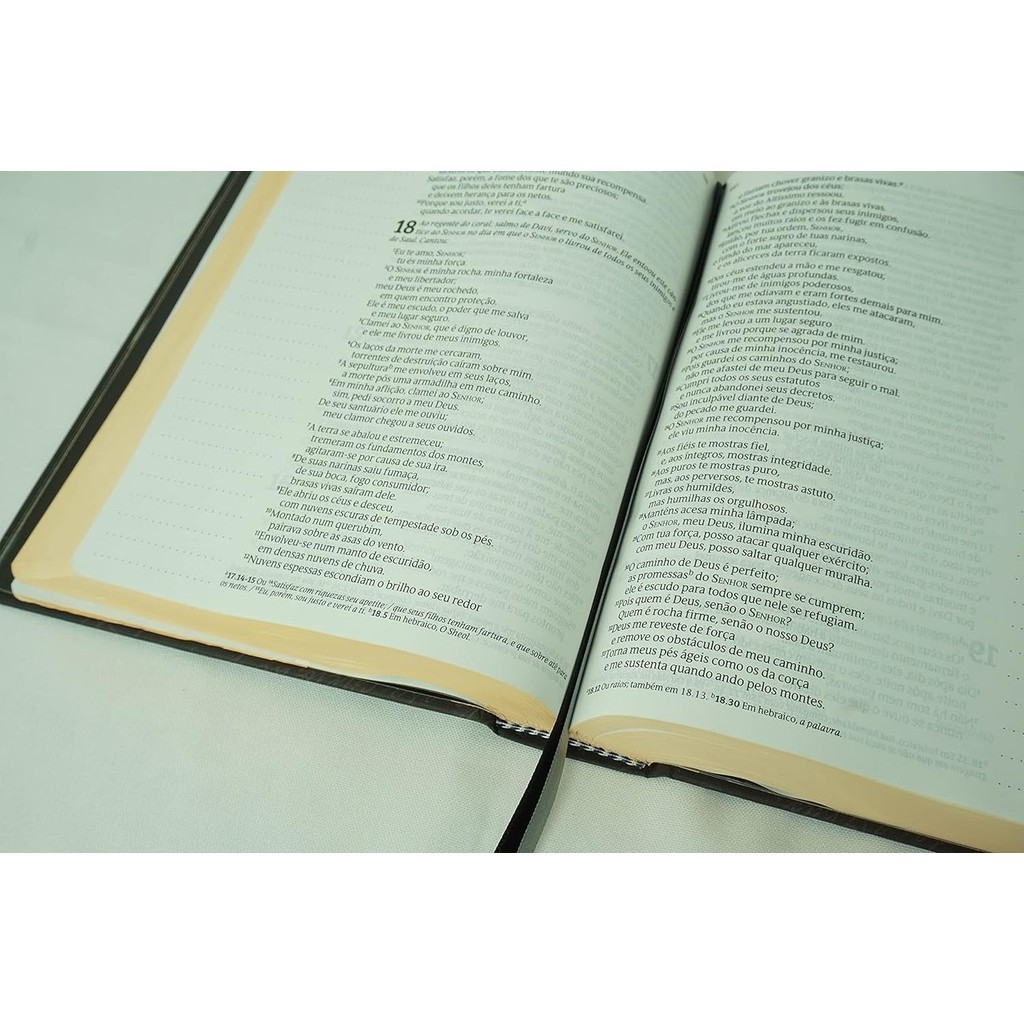 mundo sua recompensa.
Satisfaz, porém, a fome dos que te são preciosos;
que os filhos deles tenham fartura
e deixem herança para os netos.
¹⁵Porque sou justo, verei a ti;ᵃ
quando acordar, te verei face a face e me satisfarei.
18 Ao regente do coral: salmo de Davi, servo do SENHOR. Ele entoou este cân-
tico ao SENHOR no dia em que o SENHOR o livrou de todos os seus inimigos e
de Saul. Cantou:
¹Eu te amo, SENHOR;
tu és minha força.
²O SENHOR é minha rocha, minha fortaleza
e meu libertador;
meu Deus é meu rochedo,
em quem encontro proteção.
Ele é meu escudo, o poder que me salva
e meu lugar seguro.
³Clamei ao SENHOR, que é digno de louvor,
e ele me livrou de meus inimigos.
⁴Os laços da morte me cercaram,
torrentes de destruição caíram sobre mim.
⁵A sepulturaᵇ me envolveu em seus laços,
a morte pôs uma armadilha em meu caminho.
⁶Em minha aflição, clamei ao SENHOR;
sim, pedi socorro a meu Deus.
De seu santuário ele me ouviu;
meu clamor chegou a seus ouvidos.
⁷A terra se abalou e estremeceu;
tremeram os fundamentos dos montes,
agitaram-se por causa de sua ira.
⁸De suas narinas saiu fumaça,
de sua boca, fogo consumidor;
brasas vivas saíram dele.
⁹Ele abriu os céus e desceu,
com nuvens escuras de tempestade sob os pés.
¹⁰Montado num querubim,
pairava sobre as asas do vento.
¹¹Envolveu-se num manto de escuridão,
em densas nuvens de chuva.
¹²Nuvens espessas escondiam o brilho ao seu redor
ᵃ17.14-15 Ou ¹⁴Satisfaz com riquezas seu apetite / que seus filhos tenham fartura, e que sobre até para
os netos. / ¹⁵Eu, porém, sou justo e verei a ti. ᵇ18.5 Em hebraico, O Sheol.
e faziam chover granizo e brasas vivas.ᵃ
¹³O SENHOR trovejou dos céus;
a voz do Altíssimo ressoou,
em meio ao granizo e às brasas vivas.
¹⁴Atirou flechas e dispersou seus inimigos,
lançou muitos raios e os fez fugir em confusão.
¹⁵Então, por tua ordem, SENHOR,
com o forte sopro de tuas narinas,
o fundo do mar apareceu,
e os alicerces da terra ficaram expostos.
¹⁶Dos céus estendeu a mão e me resgatou;
tirou-me de águas profundas.
¹⁷Livrou-me de inimigos poderosos,
dos que me odiavam e eram fortes demais para mim.
¹⁸Quando eu estava angustiado, eles me atacaram,
mas o SENHOR me sustentou.
¹⁹Ele me levou a um lugar seguro
e me livrou porque se agrada de mim.
²⁰O SENHOR me recompensou por minha justiça;
por causa de minha inocência, me restaurou.
²¹Pois guardei os caminhos do SENHOR;
não me afastei de meu Deus para seguir o mal.
²²Cumpri todos os seus estatutos
e nunca abandonei seus decretos.
²³Sou inculpável diante de Deus;
do pecado me guardei.
²⁴O SENHOR me recompensou por minha justiça;
ele viu minha inocência.
²⁵Aos fiéis te mostras fiel,
e, aos íntegros, mostras integridade.
²⁶Aos puros te mostras puro,
mas, aos perversos, te mostras astuto.
²⁷Livras os humildes,
mas humilhas os orgulhosos.
²⁸Manténs acesa minha lâmpada;
o SENHOR, meu Deus, ilumina minha escuridão.
²⁹Com tua força, posso atacar qualquer exército;
com meu Deus, posso saltar qualquer muralha.
³⁰O caminho de Deus é perfeito;
as promessasᵇ do SENHOR sempre se cumprem;
ele é escudo para todos que nele se refugiam.
³¹Pois quem é Deus, senão o SENHOR?
Quem é rocha firme, senão o nosso Deus?
³²Deus me reveste de força
e remove os obstáculos de meu caminho.
³³Torna meus pés ágeis como os da corça
e me sustenta quando ando pelos montes.
ᵃ18.12 Ou raios; também em 18.13. ᵇ18.30 Em hebraico, a palavra.